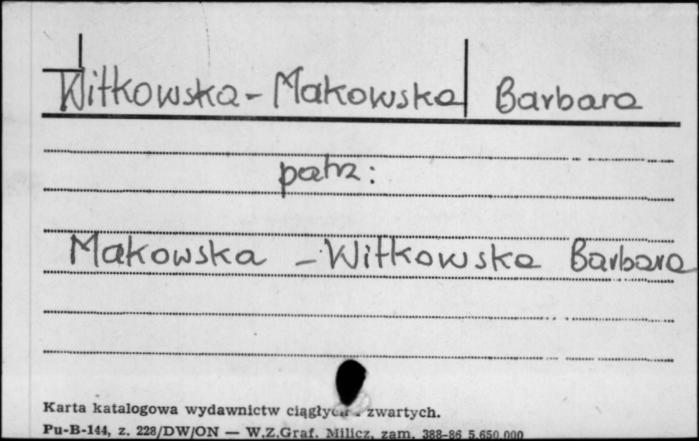 Witkowska - Makowska Barbara
patrz:
Makowska - Witkowska Barbara
Karta katalogowa wydawnictw ciągłych i zwartych.
Pu-B-144, z. 228/DW/ON — W.Z.Graf. Milicz, zam. 388-86 5.650.000